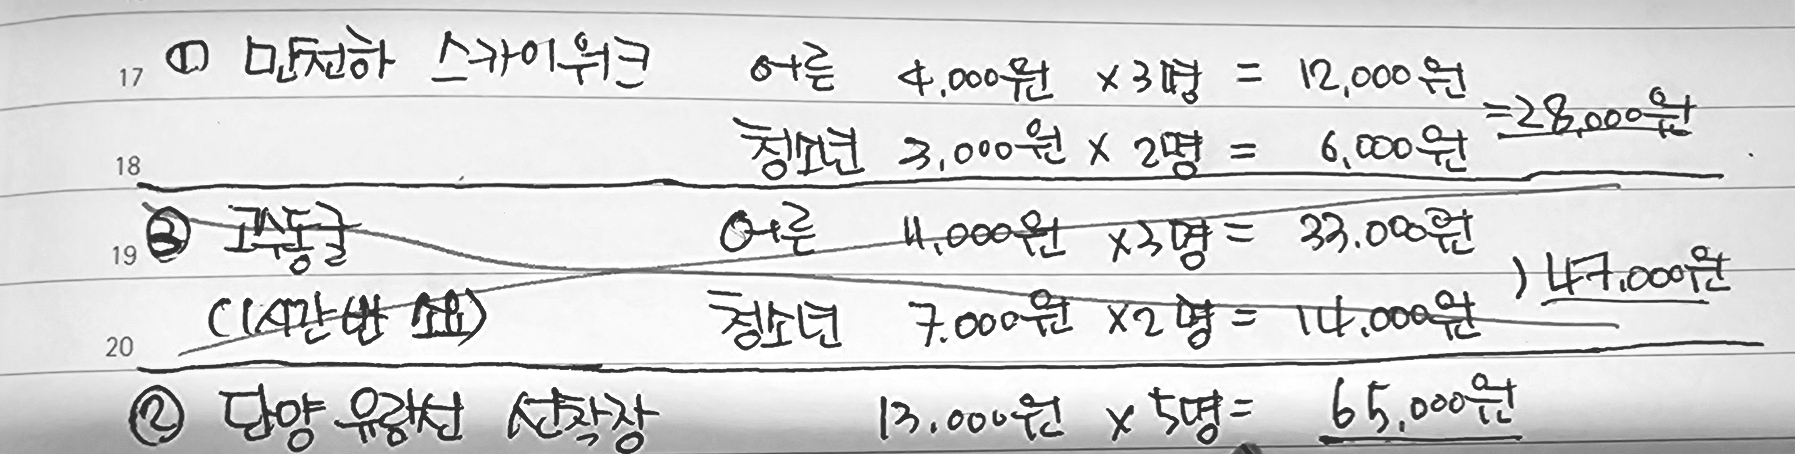 17 ① 만천하 스카이워크 어른 4,000원 ×3명 = 12,000원
=28,000원
18 청소년 3,000원 × 2명 = 6,000원
19 ② 고수동굴 어른 11,000원 ×3명 = 33,000원
) 47,000원
20 (1시간반 소요) 청소년 7,000원 ×2명 = 14,000원
② 단양 유람선 선착장 13,000원 × 5명 = 65,000원